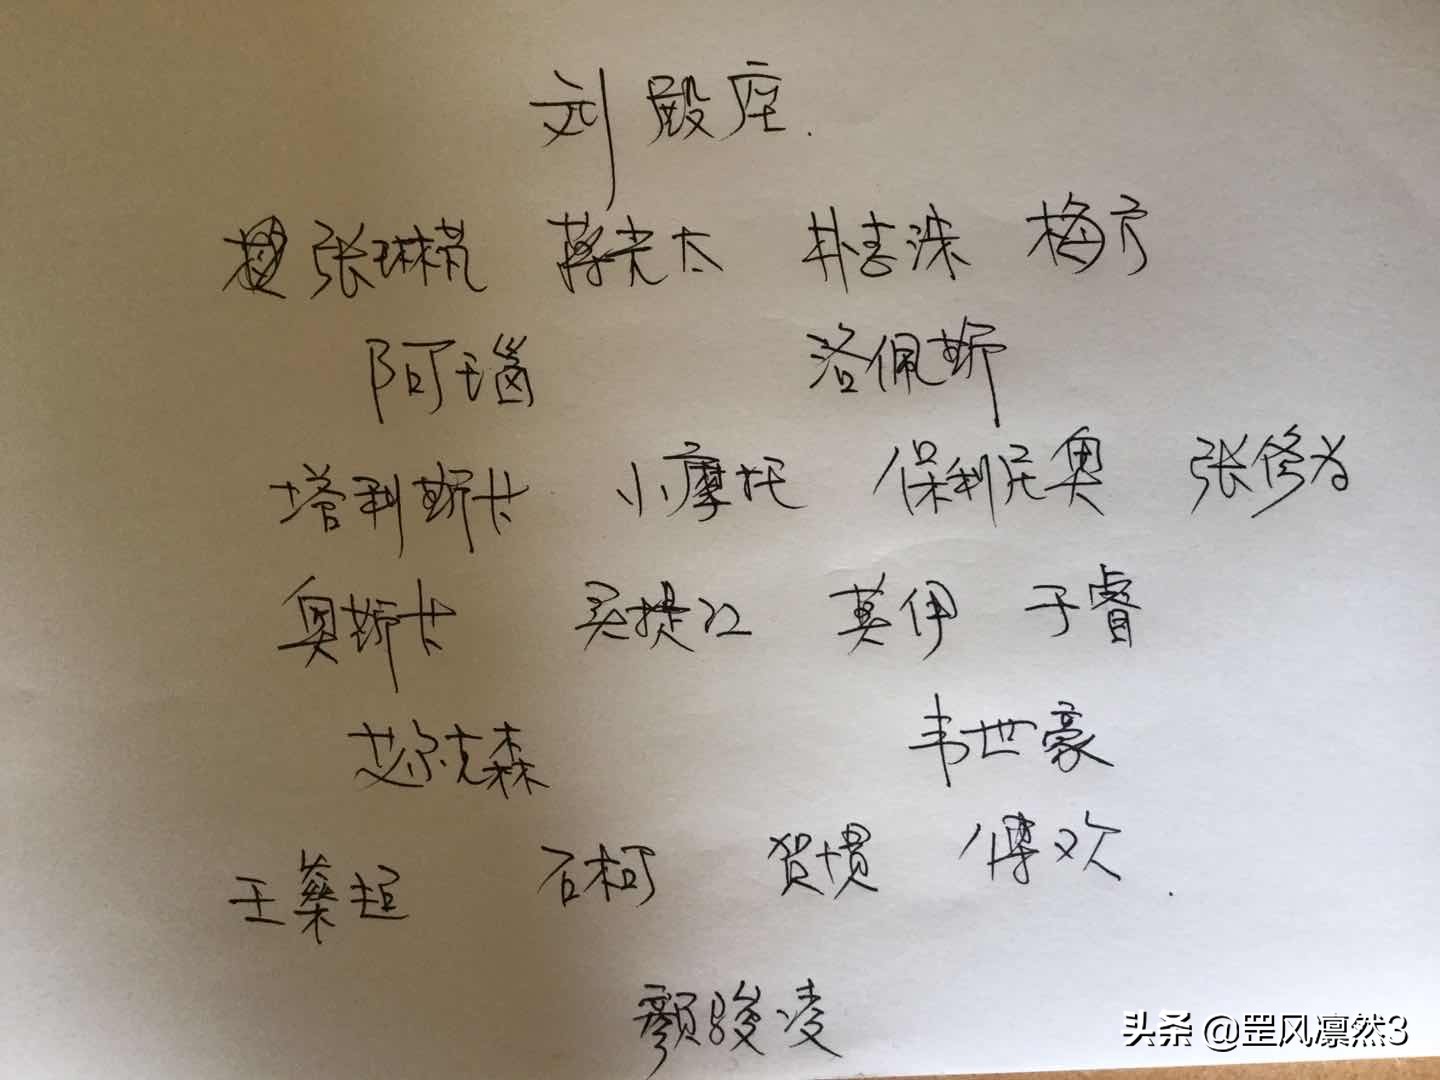 刘殿座.
张琳芃 蒋光太 朴志洙 梅方
阿瑙 洛佩斯
塔利斯卡 小摩托 保利尼奥 张修为
奥斯卡 买提江 莫伊 于睿
艾尔克森 韦世豪
王燊超 石柯 贺惯 傅欢.
颜骏凌
头条 @罡风凛然3